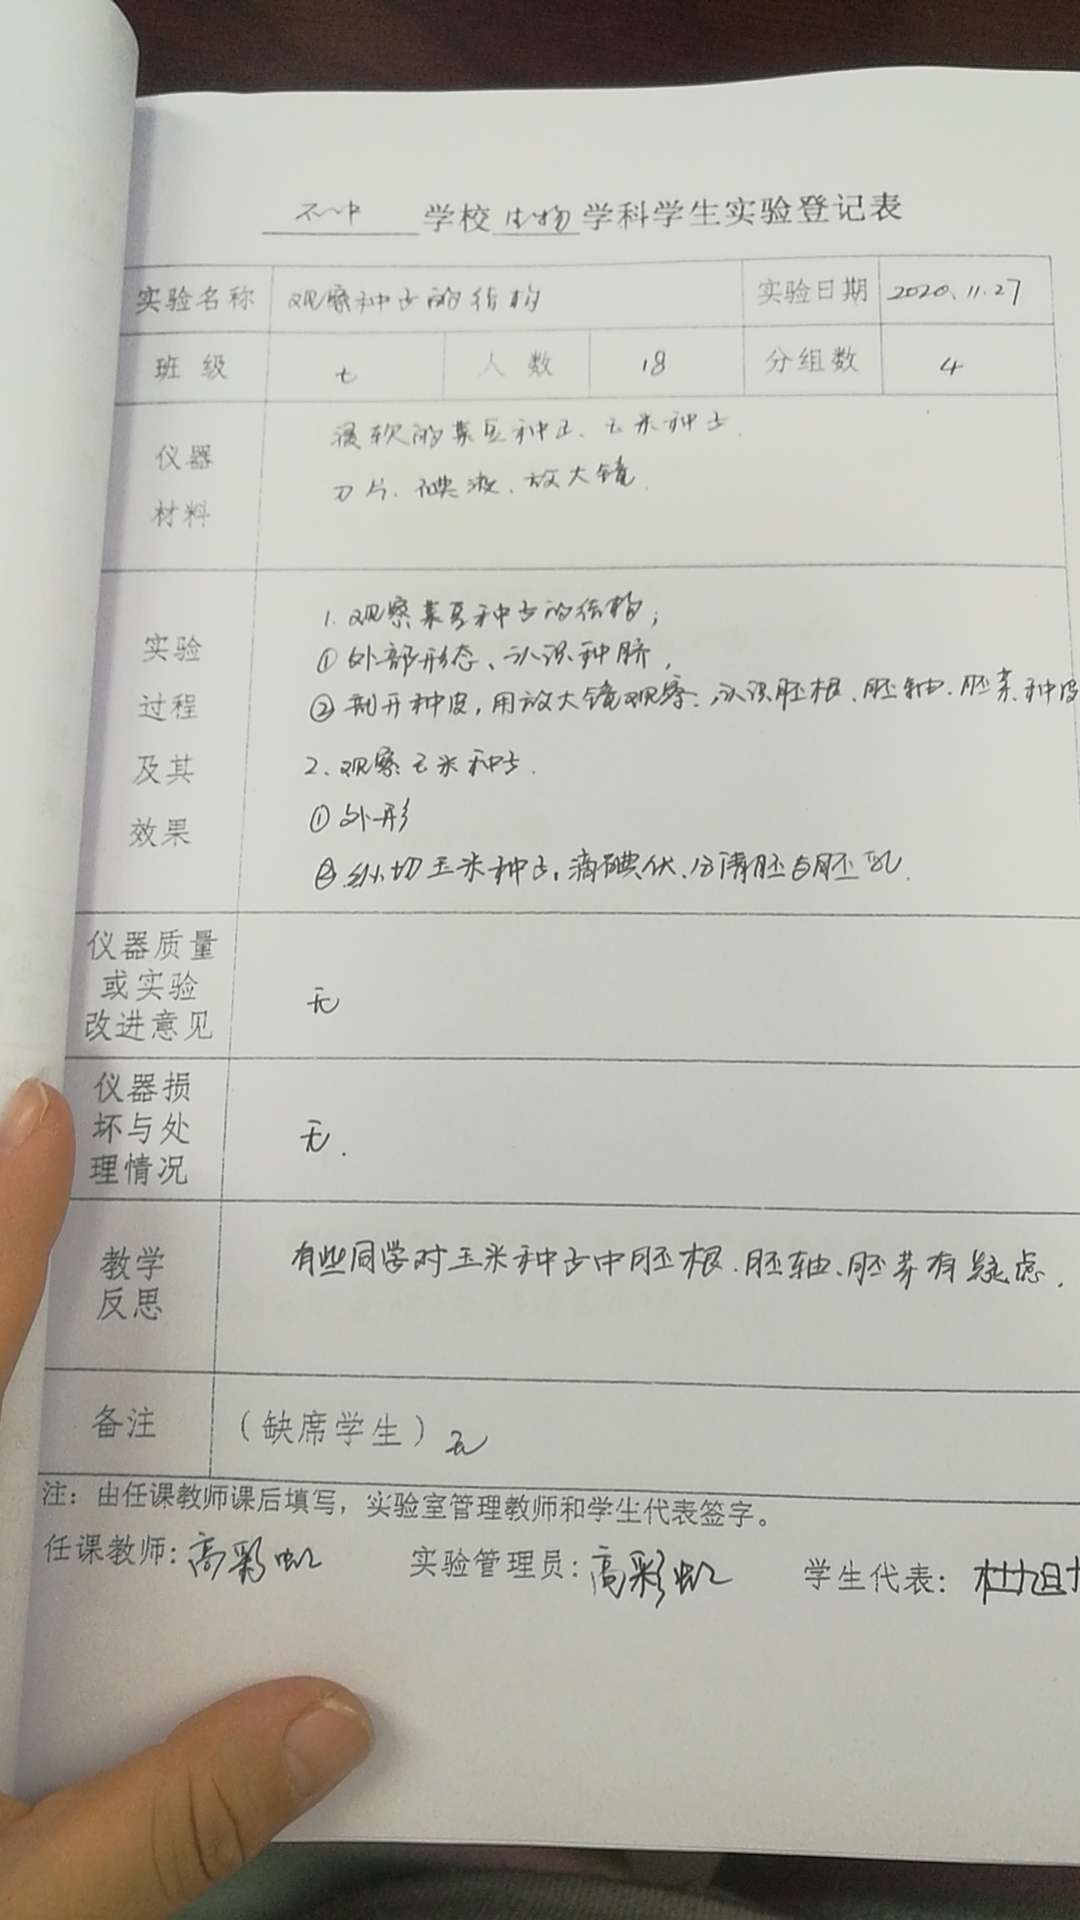 学校 生物 学科学生实验登记表
实验名称 观察种子的结构 实验日期 2020.11.27
班级 七 人数 18 分组数 4
仪器材料
浸软的菜豆种子、玉米种子.
刀片、碘液、放大镜.
实验过程及其效果
1. 观察菜豆种子的结构;
①外部形态、认识种脐,
②剖开种皮,用放大镜观察、认识胚根、胚轴、胚芽、种皮
2、观察玉米种子.
①外形
②纵切玉米种子,滴碘伏、分清胚与胚乳.
仪器质量或实验改进意见 无
仪器损坏与处理情况 无.
教学反思 有些同学对玉米种子中胚根、胚轴、胚芽有疑虑.
备注 (缺席学生)无
注:由任课教师课后填写,实验室管理教师和学生代表签字。
任课教师:高彩虹 实验管理员:高彩虹 学生代表:杜旭